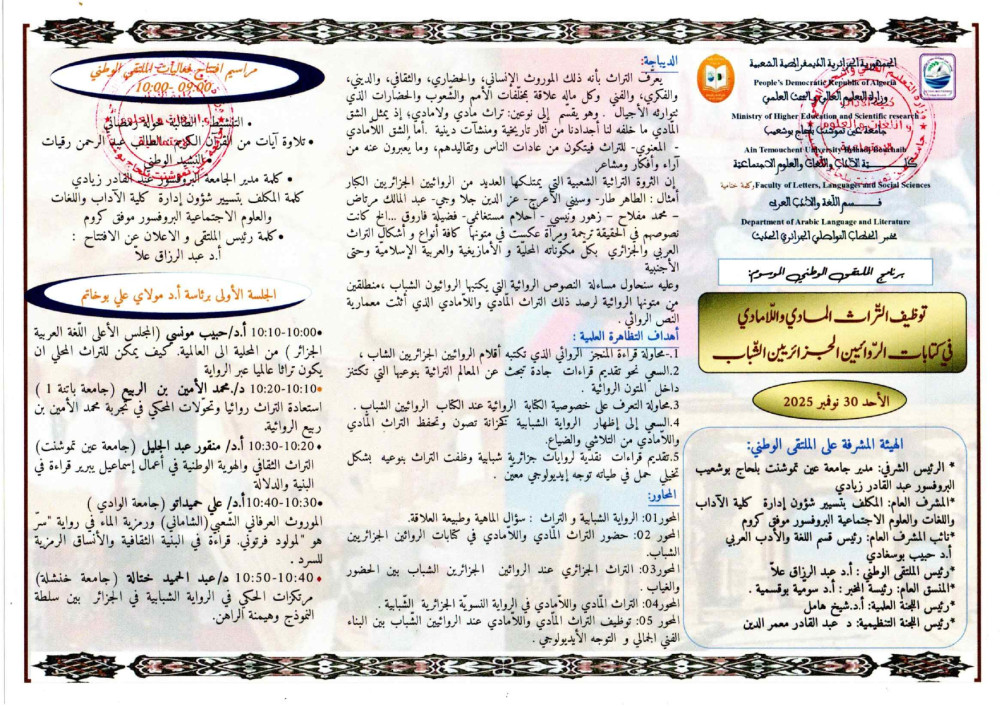 الجمهورية الجزائرية الديمقراطية الشعبية
People's Democratic Republic of Algeria
وزارة التعليم العالي والبحث العلمي
Ministry of Higher Education and Scientific research
جامعة عين تموشنت بلحاج بوشعيب
Ain Temouchent University Belhadj Bouchaib
كلية الآداب واللغات والعلوم الاجتماعية
Faculty of Letters, Languages and Social Sciences
قسم اللغة والأدب العربي
Department of Arabic Language and Literature
مخبر الخطاب التواصلي الجزائري الحديث
برنامج الملتقى الوطني الموسوم:
توظيف التّراث المادي واللاّمادي
في كتابات الرّوائيين الجزائريين الشّباب
الأحد 30 نوفمبر 2025
الهيئة المشرفة على الملتقى الوطني:
* الرئيس الشرفي: مدير جامعة عين تموشنت بلحاج بوشعيب
البروفسور عبد القادر زيادي
*المشرف العام: المكلف بتسيير شؤون إدارة كلية الآداب
واللغات والعلوم الاجتماعية البروفسور موفق كروم
*نائب المشرف العام: رئيس قسم اللغة والأدب العربي
أ.د حبيب بوسغادي
*رئيس الملتقى الوطني : أ.د عبد الرزاق علاّ
*المنسق العام: رئيسة المخبر : أ.د سومية بوقسمية .
*رئيس اللجنة العلمية: أ.د.شيخ هامل
*رئيس اللجنة التنظيمية: د عبد القادر معمر الدين
الديباجة:
يعرف التراث بأنه ذلك الموروث الإنساني، والحضاري، والثقافي، والديني،
والفكري، والفني وكل ماله علاقة بمخلفات الأمم والشعوب والحضارات الذي
تتوارثه الأجيال . وهو يقسّم إلى نوعين: تراث مادي ولامادي؛ إذ يمثل الشق
المادي ما خلفه لنا أجدادنا من آثار تاريخية ومنشآت دينية .أما الشق اللاّمادي
- المعنوي- للتراث فيتكون من عادات الناس وتقاليدهم، وما يعبرون عنه من
آراء وأفكار ومشاعر
إن الثروة التراثية الشعبية التي يمتلكها العديد من الروائيين الجزائريين الكبار
أمثال : الطاهر طار- وسيني الأعرج- عز الدين جلا وجي- عبد المالك مرتاض
– محمد مفلاح – زهور ونيسي - أحلام مستغانمي- فضيلة فاروق ...الخ كانت
نصوصهم في الحقيقة ترجمة ومرآة عكست في متونها كافة أنواع و أشكال التراث
العربي والجزائري بكل مكوناته المحليّة و الأمازيغية والعربية الإسلاميّة وحتى
الأجنبية
وعليه سنحاول مساءلة النصوص الروائية التي يكتبها الروائيون الشباب ،منطلقين
من متونها الروائية لرصد ذلك التراث المّادي واللاّمادي الذي أثثت معمارية
النّص الروائي .
أهداف التظاهرة العلمية :
1.-محاولة قراءة المنجز الروائي الذي تكتبه أقلام الروائيين الجزائريين الشباب ،
2.السعي نحو تقديم قراءات جادة تبحث عن المعالم التراثية بنوعيها التي تكتنز
داخل المتون الروائية .
3.محاولة التعرف على خصوصية الكتابة الروائية عند الكتاب الروائيين الشباب .
4.السعي إلى إظهار الرواية الشبابية كخزانة تصون وتحفظ التراث المّادي
واللاّمادي من التلاشي والضياع.
5.تقديم قراءات نقدية لروايات جزائرية شبابية وظفت التراث بنوعيه بشكل
تخيلي حمل في طياته توجه إيديولوجي معيّن .
المحاور:
المحور01: الرواية الشبابية و التراث : سؤال الماهية وطبيعة العلاقة.
المحور 02: حضور التراث المّادي واللاّمادي في كتابات الروائين الجزائريين
الشباب.
المحور03: التراث الجزائري عند الروائين الجزائرين الشباب بين الحضور
والغياب .
المحور04: التراث المّادي واللاّمادي في الرواية النسويّة الجزائرية الشّبابية .
المحور 05: توظيف التراث المّادي واللاّمادي عند الروائيين الشّباب بين البناء
الفني الجمالي و التوجه الأيديولوجي .
مراسيم افتتاح فعاليات الملتقى الوطني
10:00- 09:00
• تلاوة آيات من القرآن الكريم الطالب عبد الرحمن رقيات
• النشيد الوطني
• كلمة مدير الجامعة البروفسور عبد القادر زيادي
كلمة المكلف بتسيير شؤون إدارة كلية الآداب واللغات
والعلوم الاجتماعية البروفسور موفق كروم
• كلمة رئيس الملتقى و الاعلان عن الافتتاح :
أ.د عبد الرزاق علاّ
الجلسة الأولى برئاسة أ.د مولاي علي بوخاتم
•10:00-10:10 أ.د/حبيب مونسي (المجلس الأعلى اللّغة العربية
الجزائر ) من المحلية الى العالمية. كيف يمكن للتراث المحلي ان
يكون تراثا عالميا عبر الرواية
•10:10-10:20 د/.محمد الأمين بن الربيع (جامعة باتنة 1 )
استعادة التراث روائيا وتحوّلات المحكي في تجربة محمد الأمين بن
ربيع الروائية.
•10:20-10:30 أ.د/ منقور عبد الجليل (جامعة عين تموشنت)
التراث الثقافي والهوية الوطنية في أعمال إسماعيل يبرير قراءة في
البنية والدلالة
•10:30-10:40أ.د/ علي حميداتو (جامعة الوادي )
الموروث العرفاني الشّعبي(الشاماني) ورمزية الماء في رواية "سرّ
هو "لمولود فرتوني. قراءة في البنية الثقافية والأنساق الرمزية
للسرد .
•10:40-10:50 د/عبد الحميد ختالة (جامعة خنشلة)
مرتكزات الحكي في الرواية الشبابية في الجزائر بين سلطة
النموذج وهيمنة الراهن.